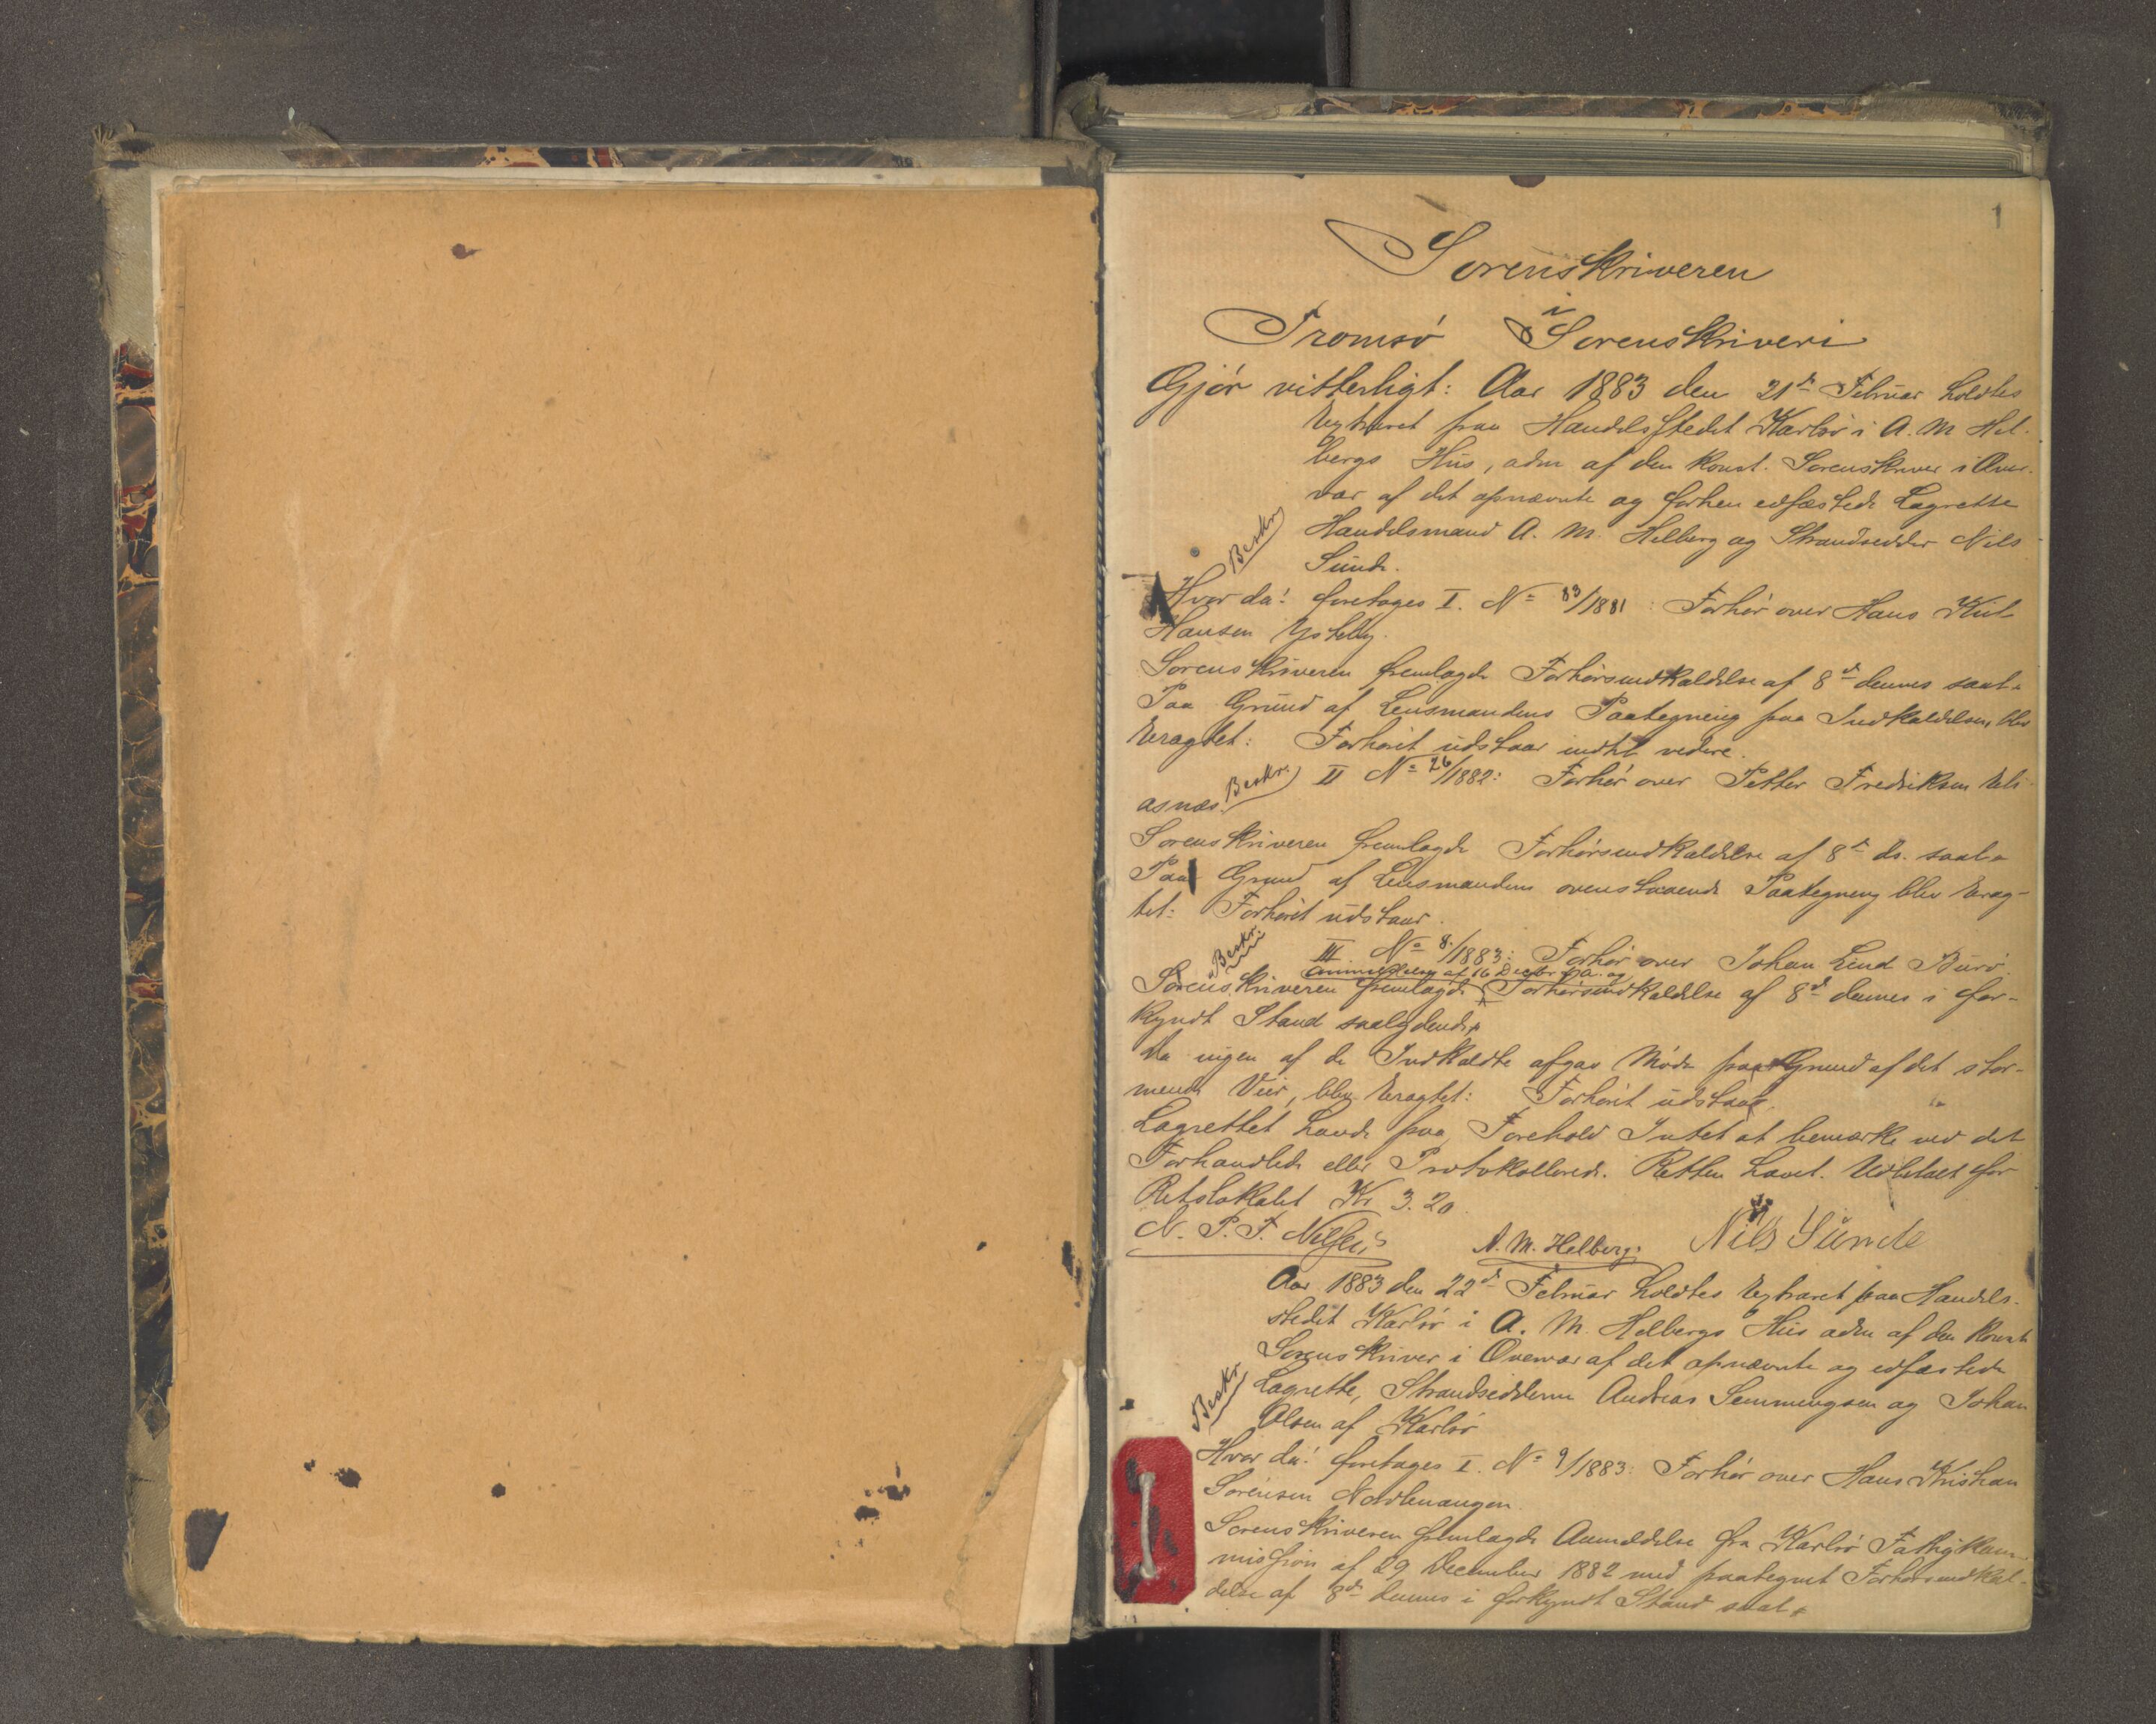 1
Sorenskriveren
i
Tromsø Sorenskriveri
Gjør vitterligt: Aar 1883 den 21de Februar holdtes
Extraret paa Handelsstedet Karlsø i A. M. Hel-
bergs Hus, adm af den konst. Sorenskriver i Over-
vær af det opnævnte og forhen edfæstede Lagrette
Handelsmand A. M. Helberg og Strandsidder Nils
Beskr
Sunde.
Hvor da! foretages I. No 83/1881: Forhør over Hans
Hansen
Sorenskriveren fremlagde Forhørsindkaldelse af 8de dennes saal.
Paa Grund af Lensmandens Paategning paa Indkaldelsen, blev
Eragtet: Forhøret udstaar indtil videre.
Beskr. II No 26/1882: Forhør over Petter Fredriksen Eli-
asnæs.
Sorenskriveren fremlagde Forhørsindkaldelse af 8de ds. saal.
Paa Grund af Lensmandens ovenstaaende Paategning blev Erag-
tet: Forhøret udstaar.
Beskr. III No 8/1883: Forhør over Johan Lind Burø.
Anmeldelse af 16 Decbr f. A. og
Sorenskriveren fremlagde Forhørsindkaldelse af 8de dennes i for-
kyndt Stand saalydende
Da ingen af de Indkaldte afgav Møde paa Grund af det stor-
mende Veir, blev Eragtet: Forhøret udstaar.
Lagrettet havde paa Forehold Intet at bemærke ved det
Forhandlede eller Protokollerede. Retten hævet. Udbetalt for
Retslokalet Kr 3.20.
N. P. F. A. M. Helberg. Nils Sunde
Aar 1883 den 22de Februar holdtes Extraret paa Handels-
stedet Karlsø i A. M. Helbergs Hus adm af den konst
Sorenskriver i Overvær af det opnævnte og edfæstede
Beskr
Lagrette, Strandsidderne Andreas Semmingsen og Johan
Olsen af Karlsø
Hvor da! foretages I. No 9/1883: Forhør over Hans Kristian
Sørensen Nordlenangen.
Sorenskriveren fremlagde Anmeldelse fra Karlsø Fattigkom-
mission af 29 December 1882 med paategnet Forhørsindkal-
delse af 8de dennes i forkyndt Stand saal.